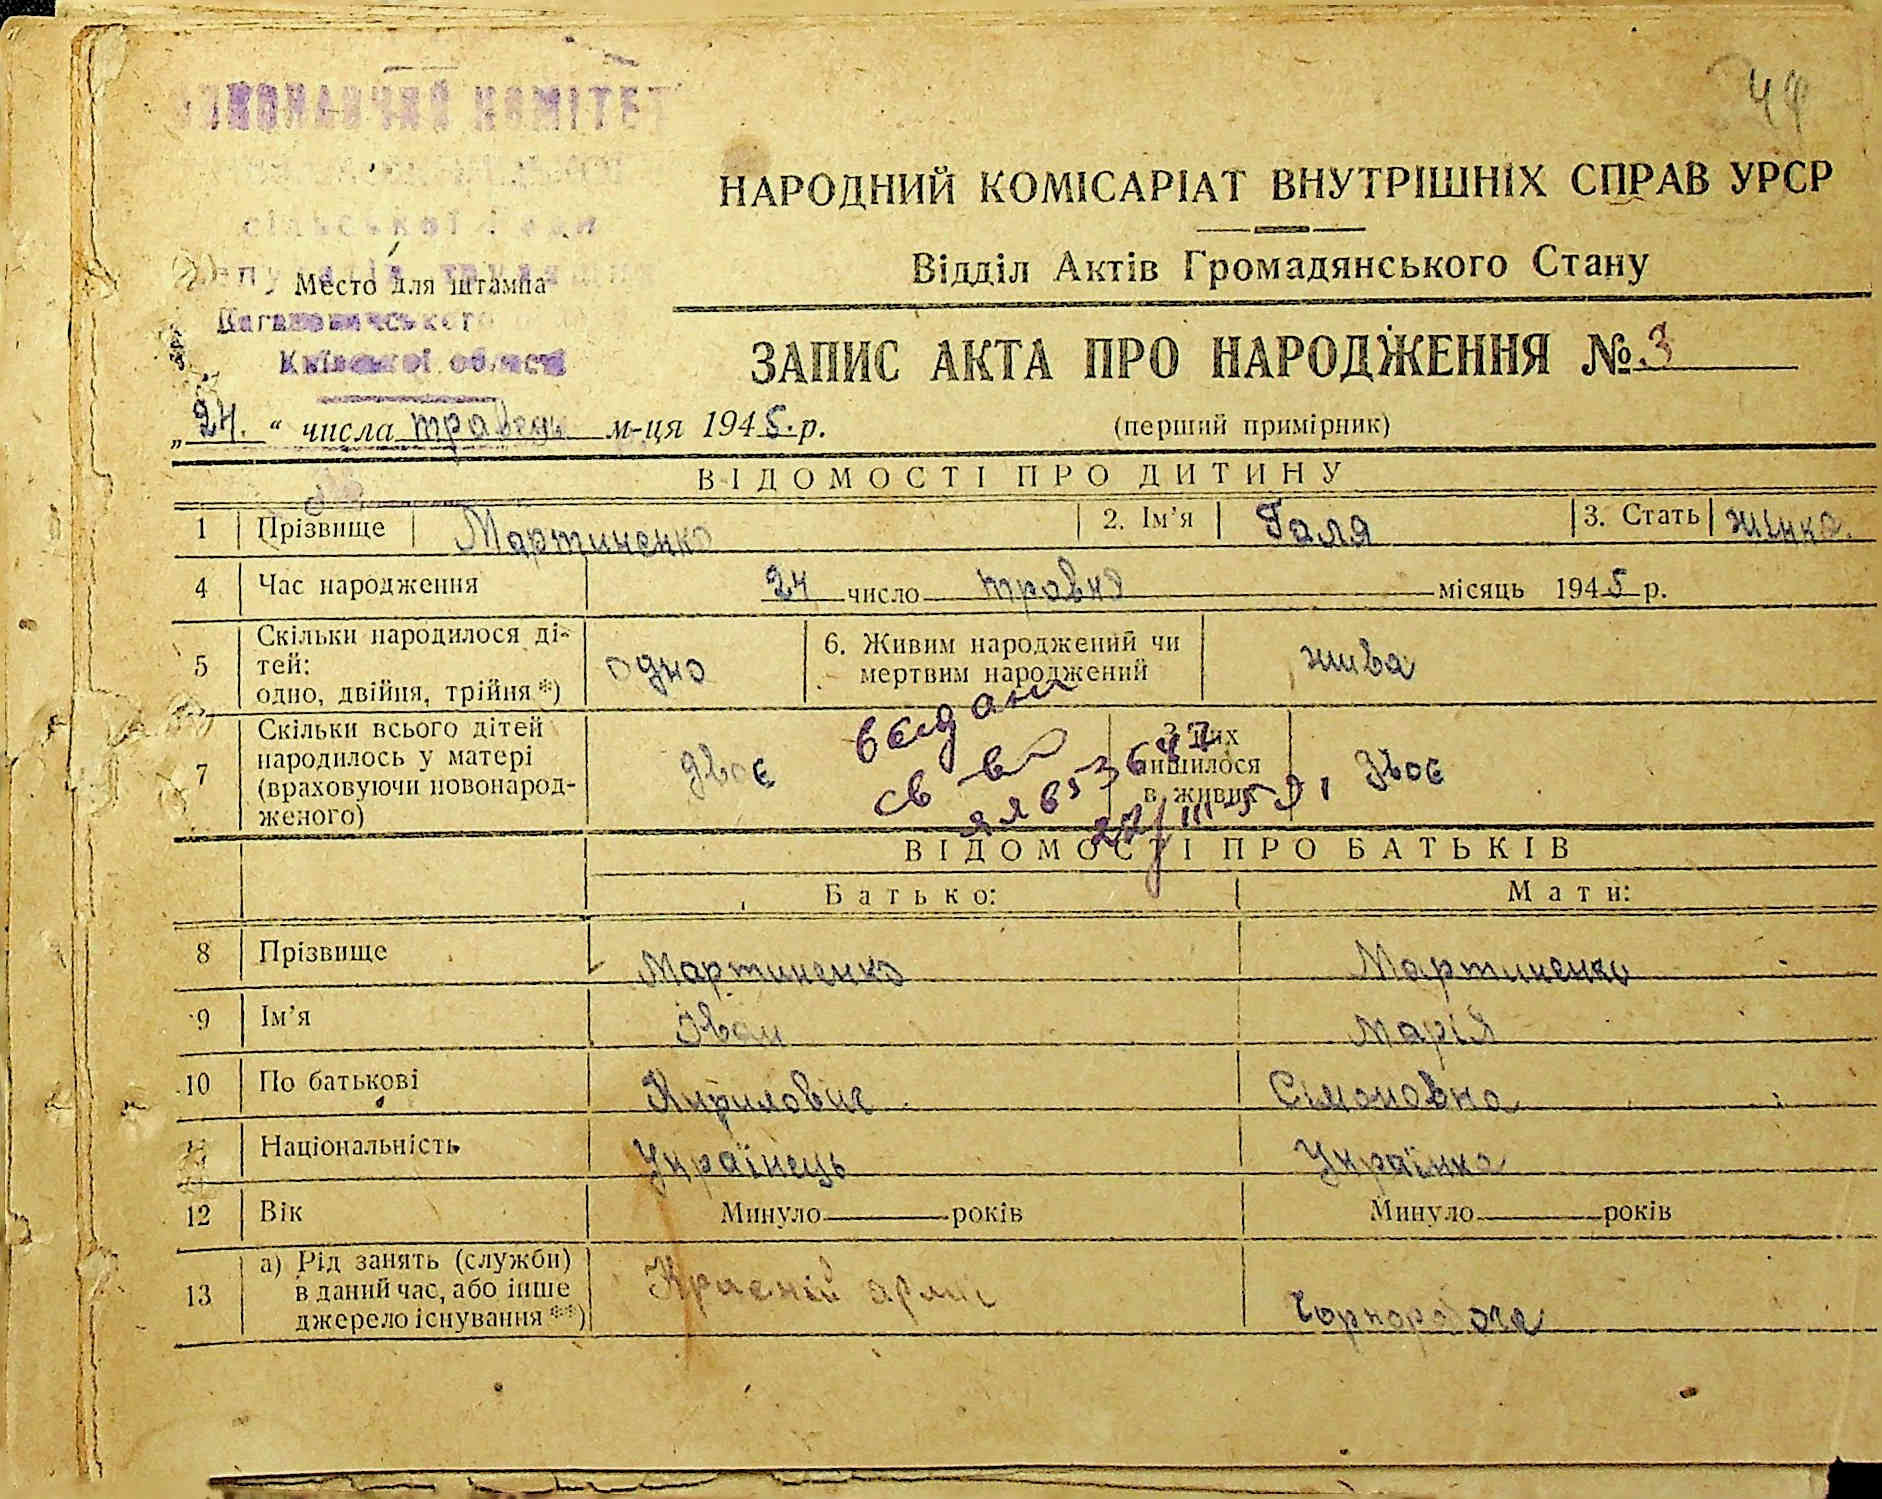 44
ВИКОНАВЧИЙ КОМІТЕТ
сільської Ради
депутатів трудящих
Место для штампа
Кагановичського
Київської області
НАРОДНИЙ КОМІСАРІАТ ВНУТРІШНІХ СПРАВ УРСР
Відділ Актів Громадянського Стану
ЗАПИС АКТА ПРО НАРОДЖЕННЯ № 3
„24.“ числа травень м-ця 1945. р.
(перший примірник)
ВІДОМОСТІ ПРО ДИТИНУ
1 Прізвище Мартиненко 2. Ім’я Галя 3. Стать жінка.
4 Час народження 24 число травня місяць 1945 р.
5 Скільки народилося ді-
тей:
одно, двійня, трійня *) одно 6. Живим народжений чи
мертвим народжений жива
7 Скільки всього дітей
народилось у матері
(враховуючи новонарод-
женого) двоє З них
лишилося
в живих двоє
св-во
ВІДОМОСТІ ПРО БАТЬКІВ
Батько: Мати:
8 Прізвище Мартиненко Мартиненко
9 Ім’я Іван Марія
10 По батькові Кирилович Сімоновна
11 Національність Українець Українка
12 Вік Минуло років Минуло років
13 а) Рід занять (служби)
в даний час, або інше
джерело існування **) Красній армії Чорноробота